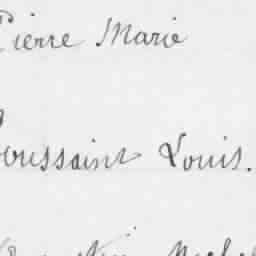 Pierre Marie
Toussaint Louis.